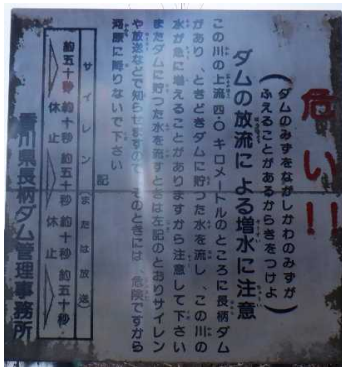 危い!!
(ダムのみずをながしかわのみずが
ふえることがあるからきをつけよ)
ダムの放流による増水に注意
この川の上流四・〇キロメートルのところに長柄ダム
があり、ときどきダムに貯つた水を流し、この川の
水が急に増えることがありますから注意して下さい
またダムに貯つた水を流すときは左記のとおりサイレン
や放送などで知らせますので、このときには、危険ですから
河原に降りないで下さい
記
サイレン(または放送)
約五十秒 約十秒 約五十秒 約十秒 約五十秒
休止 休止
香川県長柄ダム管理事務所